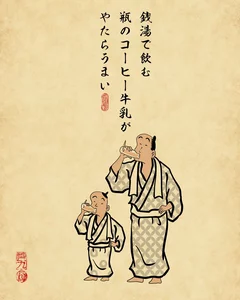 銭湯で飲む
瓶のコーヒー牛乳が
やたらうまい